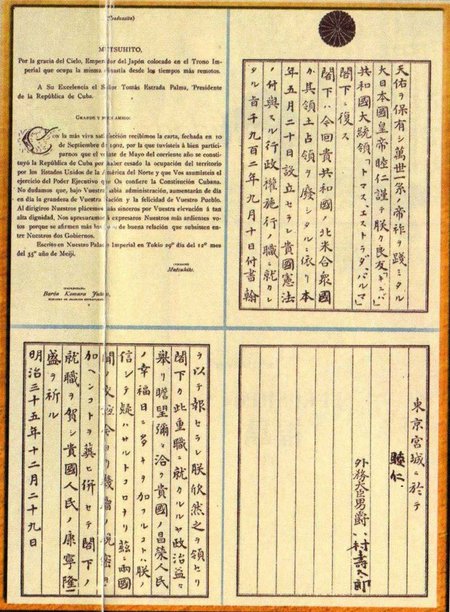 MUTSUHITO,
Por la gracia del Cielo, Emperador del Japón colocado en el Trono Im-
perial que ocupa la misma dinastía desde los tiempos más remotos.
A Su Excelencia el Señor Tomás Estrada Palma, Presidente
de la República de Cuba.
GRANDE Y BUEN AMIGO:
Con la más viva satisfacción recibimos la carta, fechada en 10
de Septiembre de 1902, por la que tuvisteis á bien participar-
nos que el veinte de Mayo del corriente año se consti-
tuyó la República de Cuba por haber cesado la ocupación del territorio
por los Estados Unidos de la América del Norte y que Vos asumisteis el
ejercicio del Poder Ejecutivo que Os confiere la Constitución Cubana.
No dudamos que, bajo Vuestra sabia administración, aumentarán de día
en día la grandeza de Vuestra Nación y la felicidad de Vuestro Pueblo.
Al dirigiros Nuestros plácemes más sinceros por Vuestra elevación á tan
alta dignidad, Nos apresuramos á expresaros Nuestros más ardientes vo-
tos porque se afirmen más la de buena relación que subsiste en-
tre Nuestros dos Gobiernos.
Escrito en Nuestro Palacio Imperial en Tokio 19º día del 12º mes
del 35º año de Meiji.
Mutsuhito.
Barón Komura Jutaro,
天佑ヲ保有シ萬世一系ノ帝祚ヲ踐ミタル
大日本國皇帝睦仁謹テ朕ク良友キュバ
共和國大統領トマスエストラダパルマ
閣下ニ復ス
閣下ハ今回貴共和國ノ北米合衆國
カ其領土占領ヲ廢シタルニ依リ本
年五月二十日設立セラレ貴國憲法
ノ付與スル行政權施行ノ職ニ就カレ
タル旨千九百二年九月十日付書翰
ヲ以テ報セラレ朕欣然之ヲ領セリ
閣下カ此重職ニ就カルルヤ政治益々
舉リ瞻望彌々洽ク貴國ノ昌榮人民
ノ幸福日ニ多キヲ加フルコトハ朕ノ
信シテ疑ハサルトコロナリ茲ニ兩國
加ヘンコトヲ冀ヒ併セテ閣下ノ
就職ヲ賀シ貴國人民ノ康寧隆
盛ヲ祈ル
明治三十五年十二月二十九日
東京宮城ニ於テ
睦仁
外務大臣男爵小村壽太郎